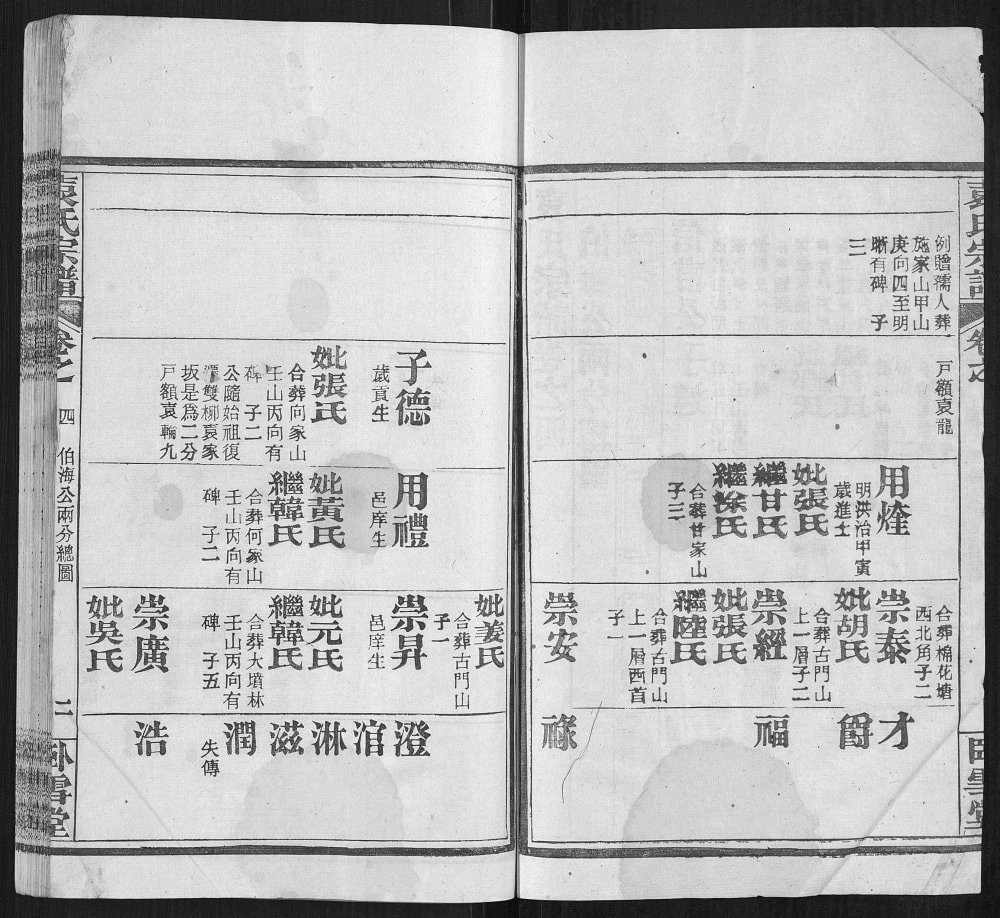 袁氏宗譜
卷之
臥雪堂
例贈孺人葬
施家山甲山
庚向四至明
晰有碑　子
三
戶額袁龍
用煃
明洪治甲寅
歲進士
妣張氏
繼甘氏
繼徐氏
合葬甘家山
子三
合葬棉花塘
西北角子二
崇泰
妣胡氏
合葬古門山
上一層子二
崇經
妣張氏
繼陸氏
合葬古門山
上一層西首
子一
崇安
才
爵
福
祿
子德
歲貢生
妣張氏
合葬向家山
壬山丙向有
碑　子二
公隨始祖復
潭雙柳袁家
坂是為二分
戶額袁輪九
用禮
邑庠生
妣黃氏
繼韓氏
合葬何家山
壬山丙向有
碑　子二
妣姜氏
合葬古門山
子一
崇昇
邑庠生
妣元氏
繼韓氏
合葬大墳林
壬山丙向有
碑　子五
崇廣
妣吳氏
澄
涫
淋
滋
潤
失傳
浩
袁氏宗譜
卷之一
四
伯海公兩分總圖
二
臥雪堂